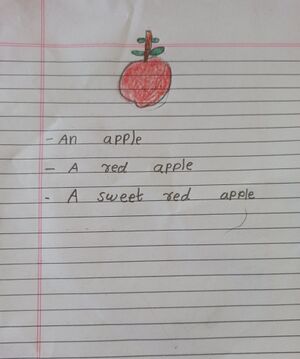 - An apple
- A red apple
- A sweet red apple